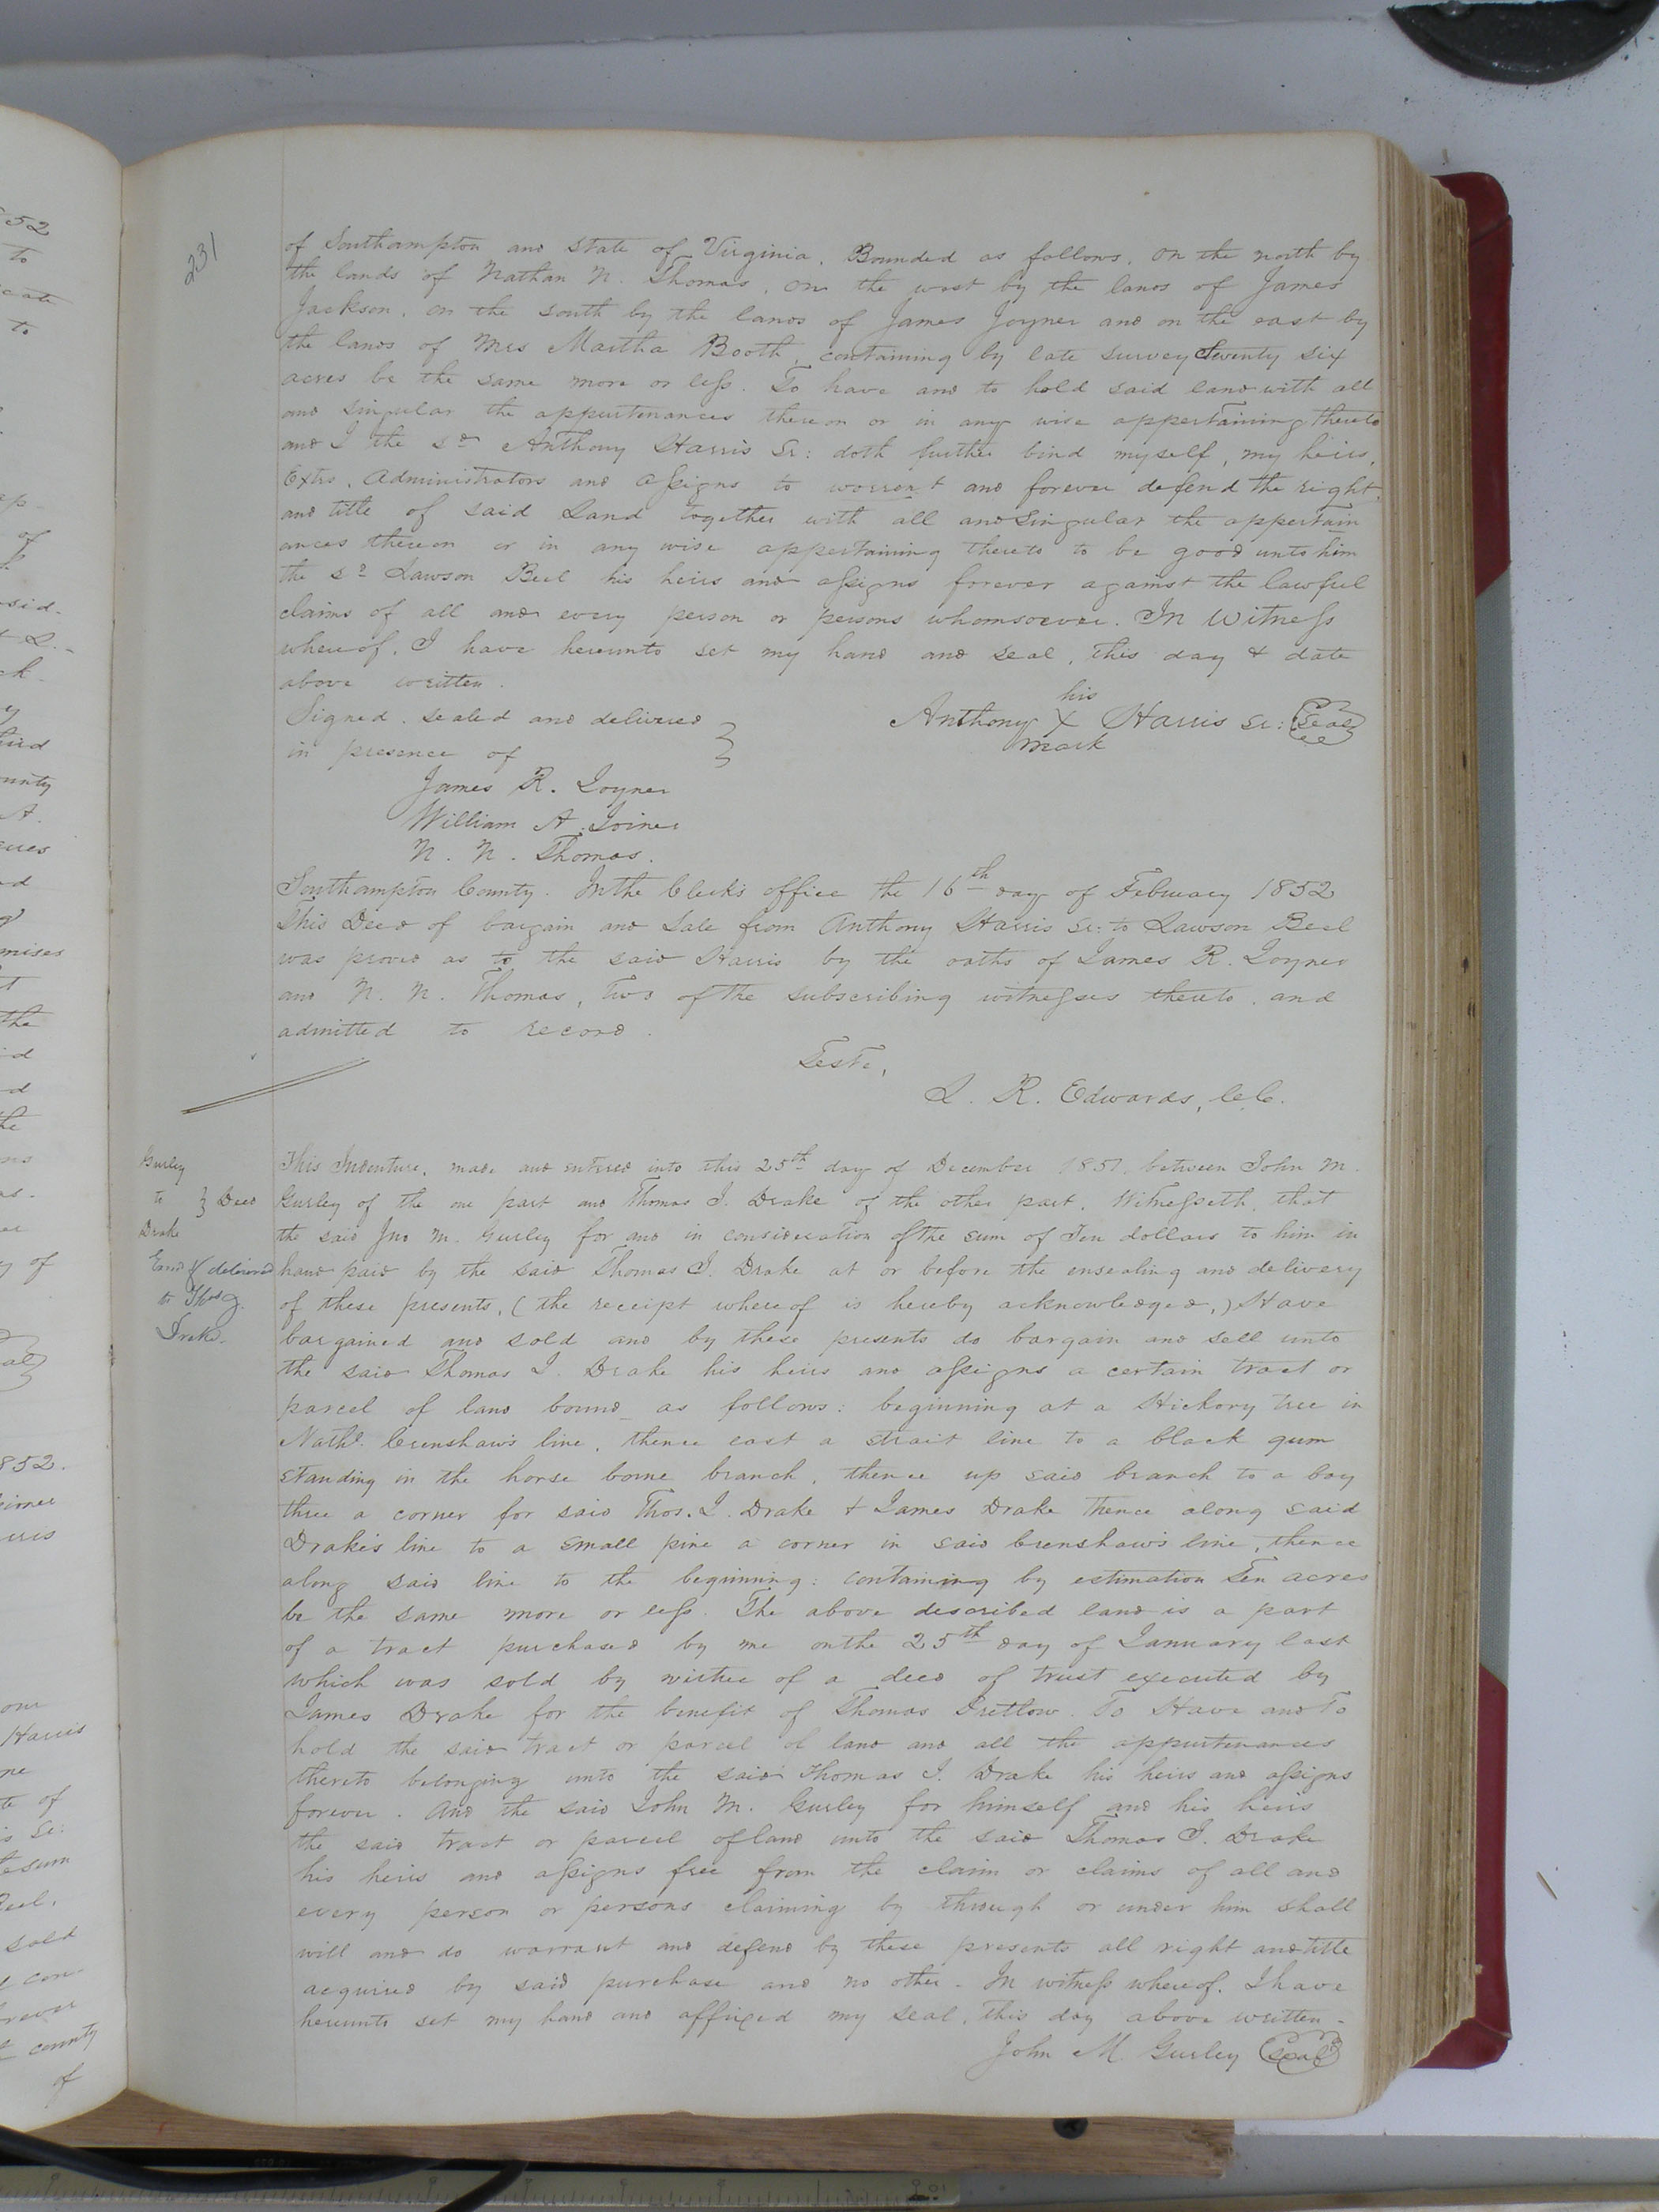 231
of Southampton and State of Virginia. Bounded as follows. On the north by
the lands of Nathan N. Thomas, on the west by the lands of James
Jackson, on the south by the lands of James Joyner and on the east by
the lands of Mrs Martha Booth, containing by late survey Twenty six
acres be the same more or less. To have and to hold said land with all
and singular the appurtenances thereon or in any wise appertaining thereto
and I the sd Anthony Harris Sr: doth further bind myself, my heirs,
Extrs, Administrators and assigns to warrent and forever defend the right
and title of said Land together with all and Singular the appertain
ances thereon or in any wise appertaining thereto to be good unto him
the sd Lawson Beel his heirs and assigns forever against the lawful
claims of all and every person or persons whomsoever. In Witness
whereof, I have hereunto set my hand and seal, this day & date
above written.
Signed, sealed and delivered
in presence of
his
Anthony X Harris Sr: Seal
mark
James R. Joyner
William A. Joiner
N. N. Thomas.
Southampton County. In the Clerk's office the 16th day of February 1852
This Deed of bargain and Sale from Anthony Harris Sr: to Lawson Beel
was proved as to the said Harris by the oaths of James R. Joyner
and N. N. Thomas, two of the subscribing witnesses thereto, and
admitted to record.
Teste,
L. R. Edwards, C.C.
Gurley
to } Deed
Drake
delivered
to Thos J.
Drake.
This Indenture, made and entered into this 25th day of December 1851, between John M.
Gurley of the one part and Thomas J. Drake of the other part, Witnesseth, that
the said Jno M. Gurley for and in consideration of the sum of Ten dollars to him in
hand paid by the said Thomas J. Drake at or before the ensealing and delivery
of these presents, (the receipt whereof is hereby acknowledged,) Have
bargained and sold and by these presents do bargain and sell unto
the said Thomas J. Drake his heirs and assigns a certain tract or
parcel of land bound as follows: beginning at a Hickory tree in
Nathl. Crenshaw's line, thence east a strait line to a black gum
standing in the horse bone branch, thence up said branch to a bay
three a corner for said Thos. J. Drake & James Drake thence along said
Drake's line to a small pine a corner in said Crenshaw's line, thence
along said line to the beginning: containing by estimation Ten acres
be the same more or less. The above described land is a part
of a tract purchased by me on the 25th day of January last
which was sold by virtue of a deed of trust executed by
James Drake for the benefit of Thomas Pretlow. To Have and To
hold the said tract or parcel of land and all the appurtenances
thereto belonging unto the said Thomas J. Drake his heirs and assigns
forever. And the said John M. Gurley for himself and his heirs
the said tract or parcel of land unto the said Thomas J. Drake
his heirs and assigns free from the claim or claims of all and
every person or persons claiming by through or under him shall
will and do warrant and defend by these presents all right and title
acquired by said purchase and no other. In witness whereof, I have
hereunto set my hand and affixed my seal, this day above written.
John M. Gurley Seal